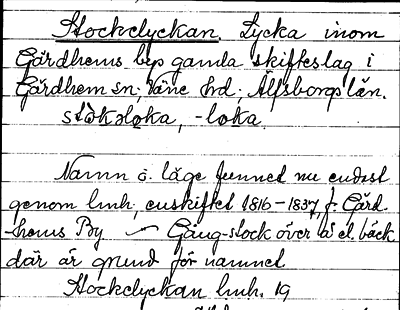 Stocklyckan. Lycka inom
Gärdhems bys gamla skifteslag i
Gärdhem sn; Väne hd; Älfsborgs län.
stòkləka, -loka.
Namn o. läge funnet nu endast
genom lmh; enskiftet 1816-1837, f. Gärd-
hems By — Gång-stock över å el. bäck
där är grund för namnet
Stocklyckan lmh. 19